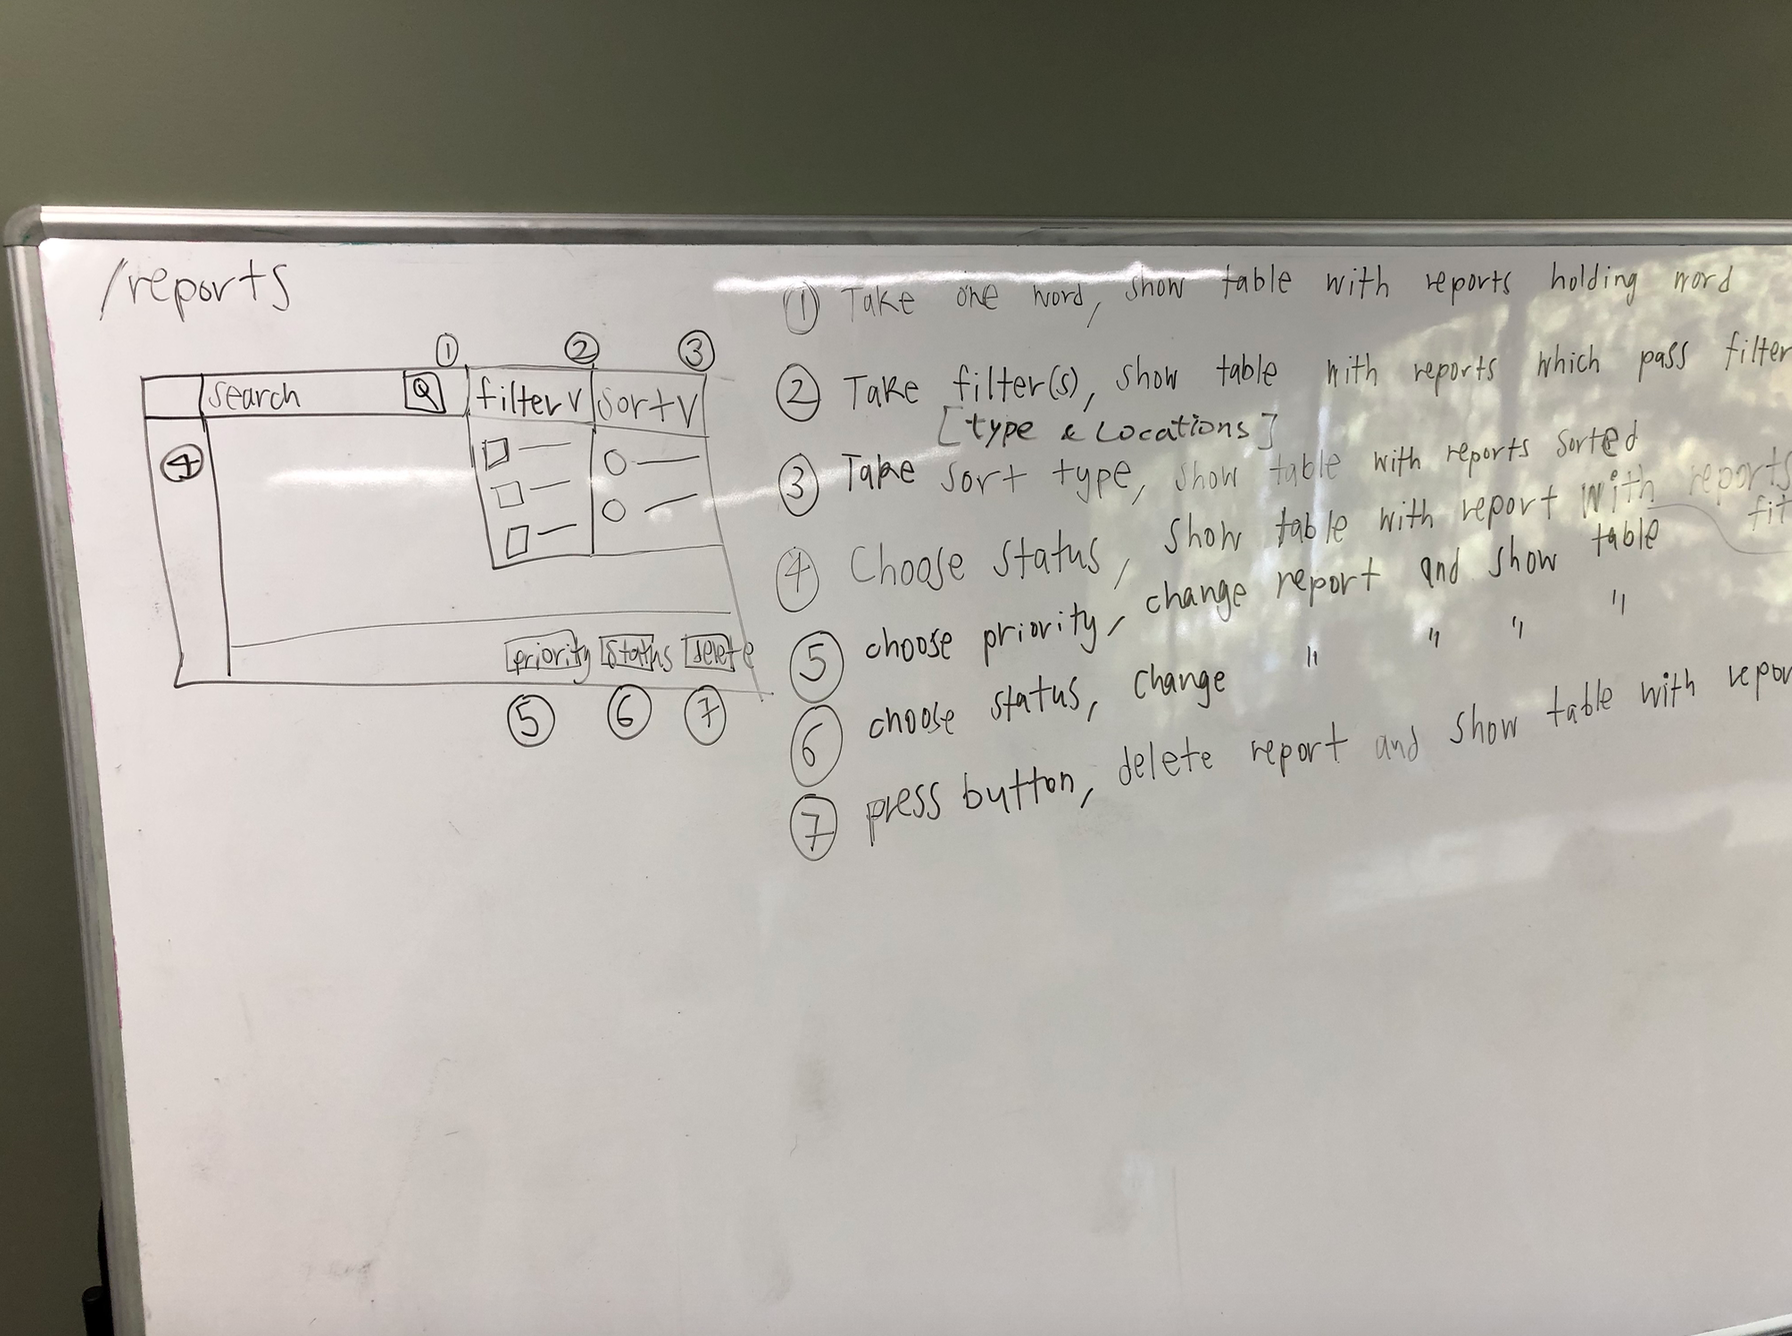 /reports
① ② ③
search Q filter V sort V
④
priority status delete
⑤ ⑥ ⑦
① Take one word, show table with reports holding word
② Take filter(s), show table with reports which pass filter
[type & Locations]
③ Take sort type, show table with reports sorted
④ Choose status, show table with report with reports
fit
⑤ choose priority, change report and show table
⑥ choose status, change " " " "
⑦ press button, delete report and show table with repor